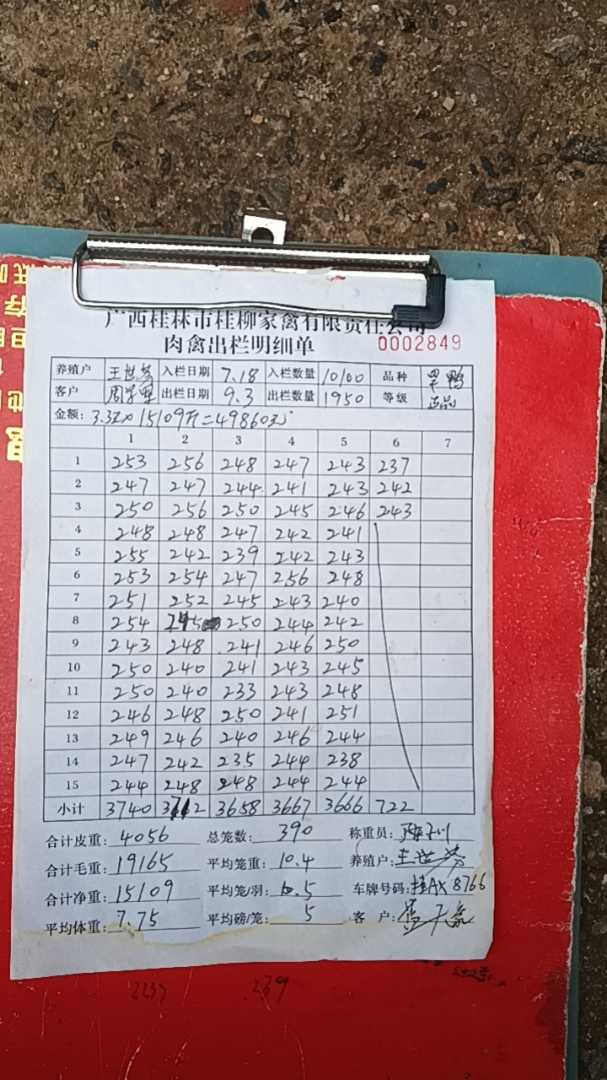 广西桂林市桂柳家禽有限责任公司
肉禽出栏明细单 0002849
养殖户 王世芬 入栏日期 7.18 入栏数量 10100 品种 旱鸭
客户 出栏日期 9.3 出栏数量 1950 等级 正品
金额: 15109斤=49860元
1 2 3 4 5 6 7
1 253 256 248 247 243 237
2 247 247 244 241 243 242
3 250 256 250 245 246 243
4 248 248 247 242 241
5 255 242 239 242 243
6 253 254 247 256 248
7 251 252 245 243 240
8 254 245 250 244 242
9 243 248 241 246 250
10 250 240 241 243 245
11 250 240 233 243 248
12 246 248 250 241 251
13 249 246 240 246 244
14 247 242 235 244 238
15 244 248 248 244 244
小计 3740 3712 3658 3667 3666 722
合计皮重: 4056 总笼数: 390 称重员:
合计毛重: 19165 平均笼重: 10.4 养殖户: 王世芬
合计净重: 15109 平均笼/羽: 5 车牌号码: 桂AX8766
平均体重: 7.75 平均磅/笼: 5 客 户:
2237 239